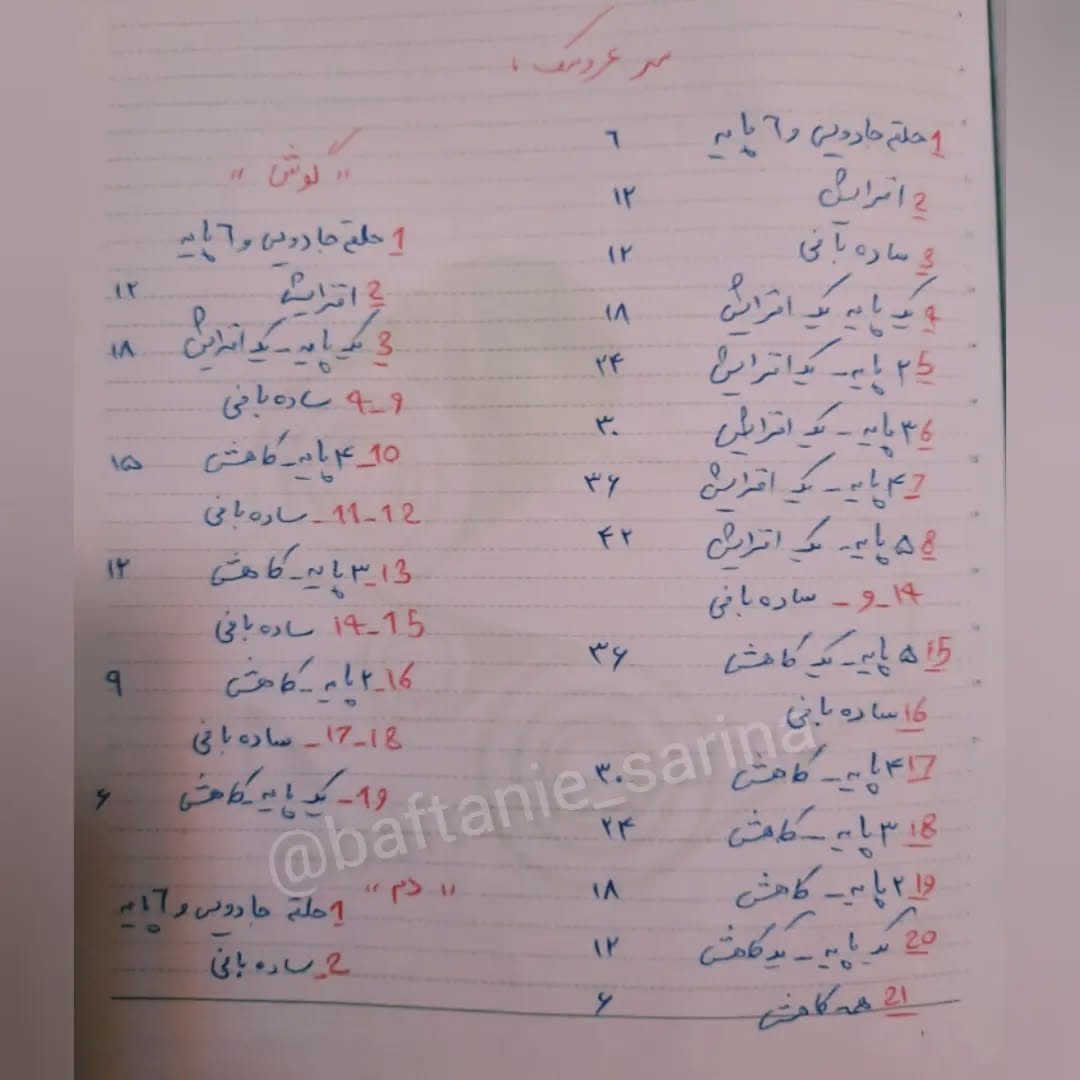 سر عروسک :
1 حلقه جادویی و ٦ پایه ٦
2 افزایش ۱۲
3 ساده بافی ۱۲
4 یک پایه یک افزایش ۱۸
5 ۲ پایه - یک افزایش ۲۴
6 ۳ پایه - یک افزایش ۳۰
7 ۴ پایه - یک افزایش ۳۶
8 ۵ پایه - یک افزایش ۴۲
9-14 - ساده بافی
15 ۵ پایه - یک کاهش ۳۶
16 ساده بافی
17 ۴ پایه - کاهش ۳۰
18 ۳ پایه - کاهش ۲۴
19 ۲ پایه - کاهش ۱۸
20 یک پایه - یک کاهش ۱۲
21 همه کاهش ۶
"گوش"
1 حلقه جادویی و ٦ پایه
2 افزایش ۱۲
3 یک پایه - یک افزایش ۱۸
4-9 ساده بافی
10- ۴ پایه - کاهش ۱۵
11-12- ساده بافی
13- ۳ پایه - کاهش ۱۲
14-15 ساده بافی
16- ۲ پایه - کاهش 9
17-18- ساده بافی
19- یک پایه - کاهش ۶
"دم"
1 حلقه جادویی و ٦ پایه
2- ساده بافی
@baftanie_sarina